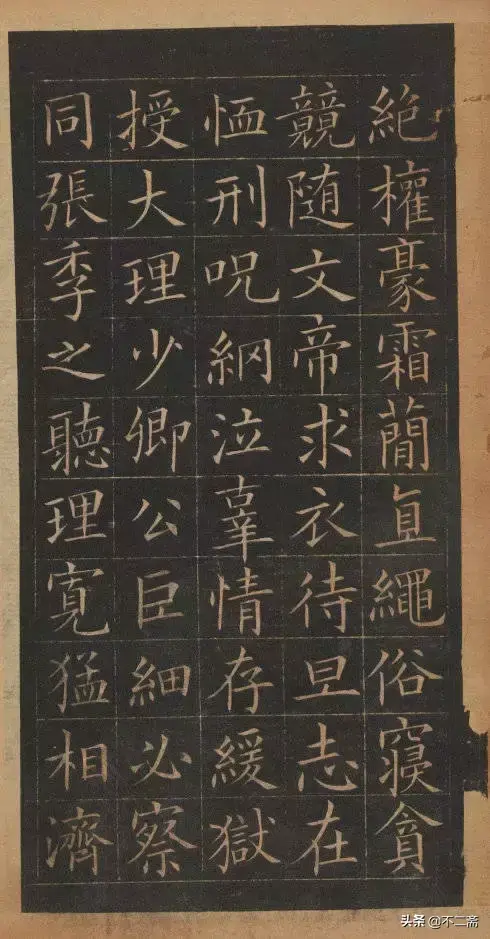 絶權豪霜簡直繩俗寢貪
競随文帝求衣待旦志在
恤刑呪網泣辜情存緩獄
授大理少卿公巨細必察
同張季之聽理寬猛相濟
头条 @不二斋